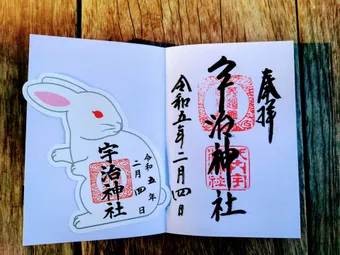 奉拝
宇治神社
令和五年二月四日
令和五年
二月四日
宇治神社